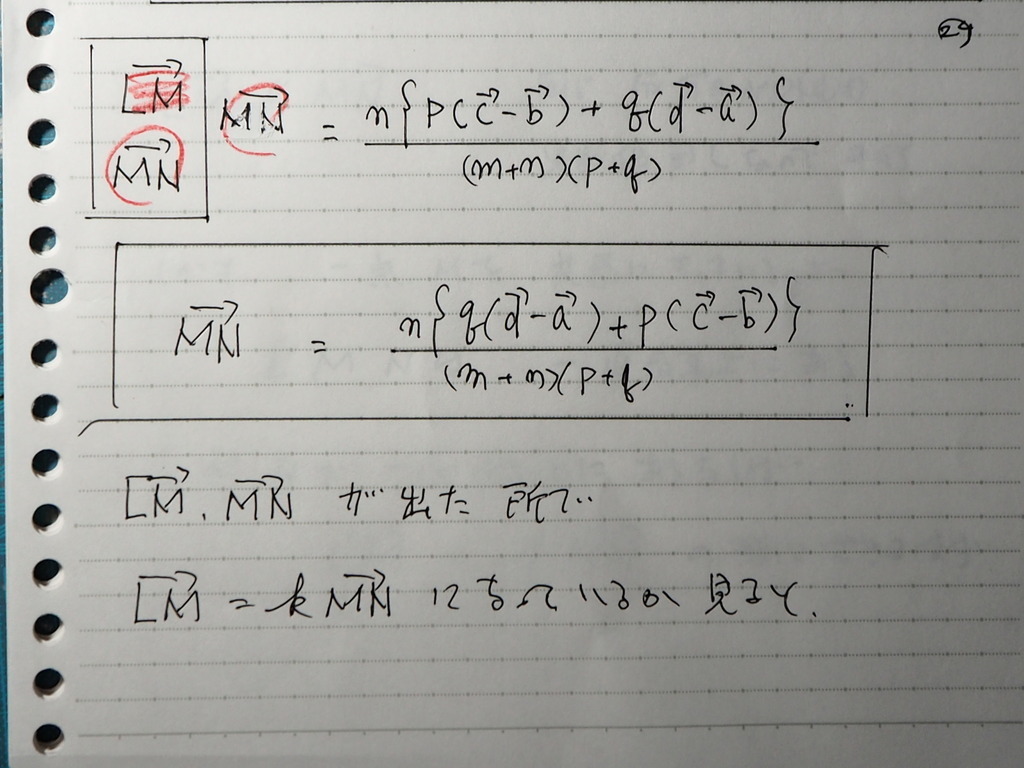 ㉙
$\overrightarrow{LM}$
$\overrightarrow{MN}$
$\overrightarrow{MN} = \frac{n\{p(\vec{c}-\vec{b})+q(\vec{d}-\vec{a})\}}{(m+n)(p+q)}$
$\overrightarrow{MN} = \frac{n\{q(\vec{d}-\vec{a})+p(\vec{c}-\vec{b})\}}{(m+n)(p+q)}$
$\overrightarrow{LM}$, $\overrightarrow{MN}$ が出た所で
$\overrightarrow{LM} = k\overrightarrow{MN}$ になっているか見ると、